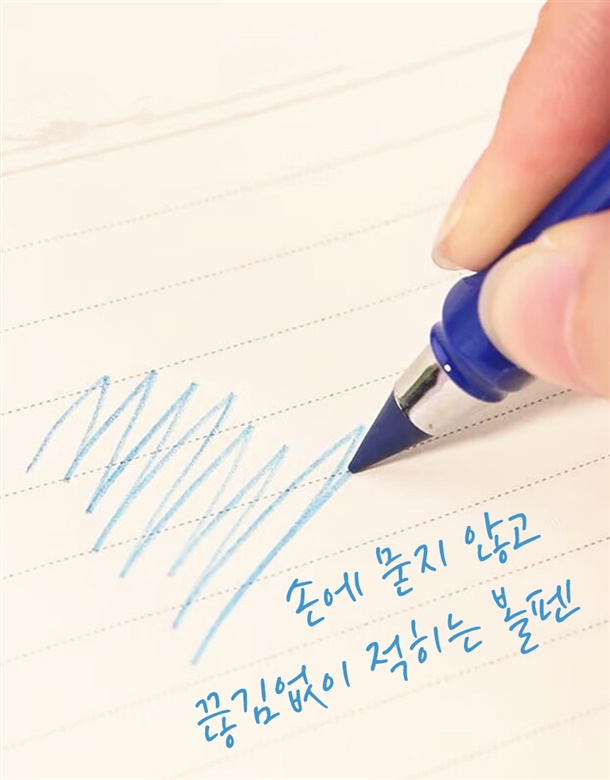 손에 묻지 않고
끊김없이 적히는 볼펜